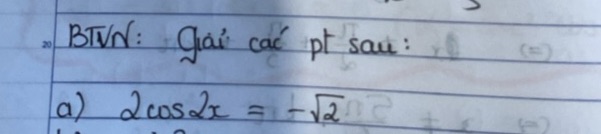 BTVN: Giải các pt sau:
a) 2cos2x = -√2